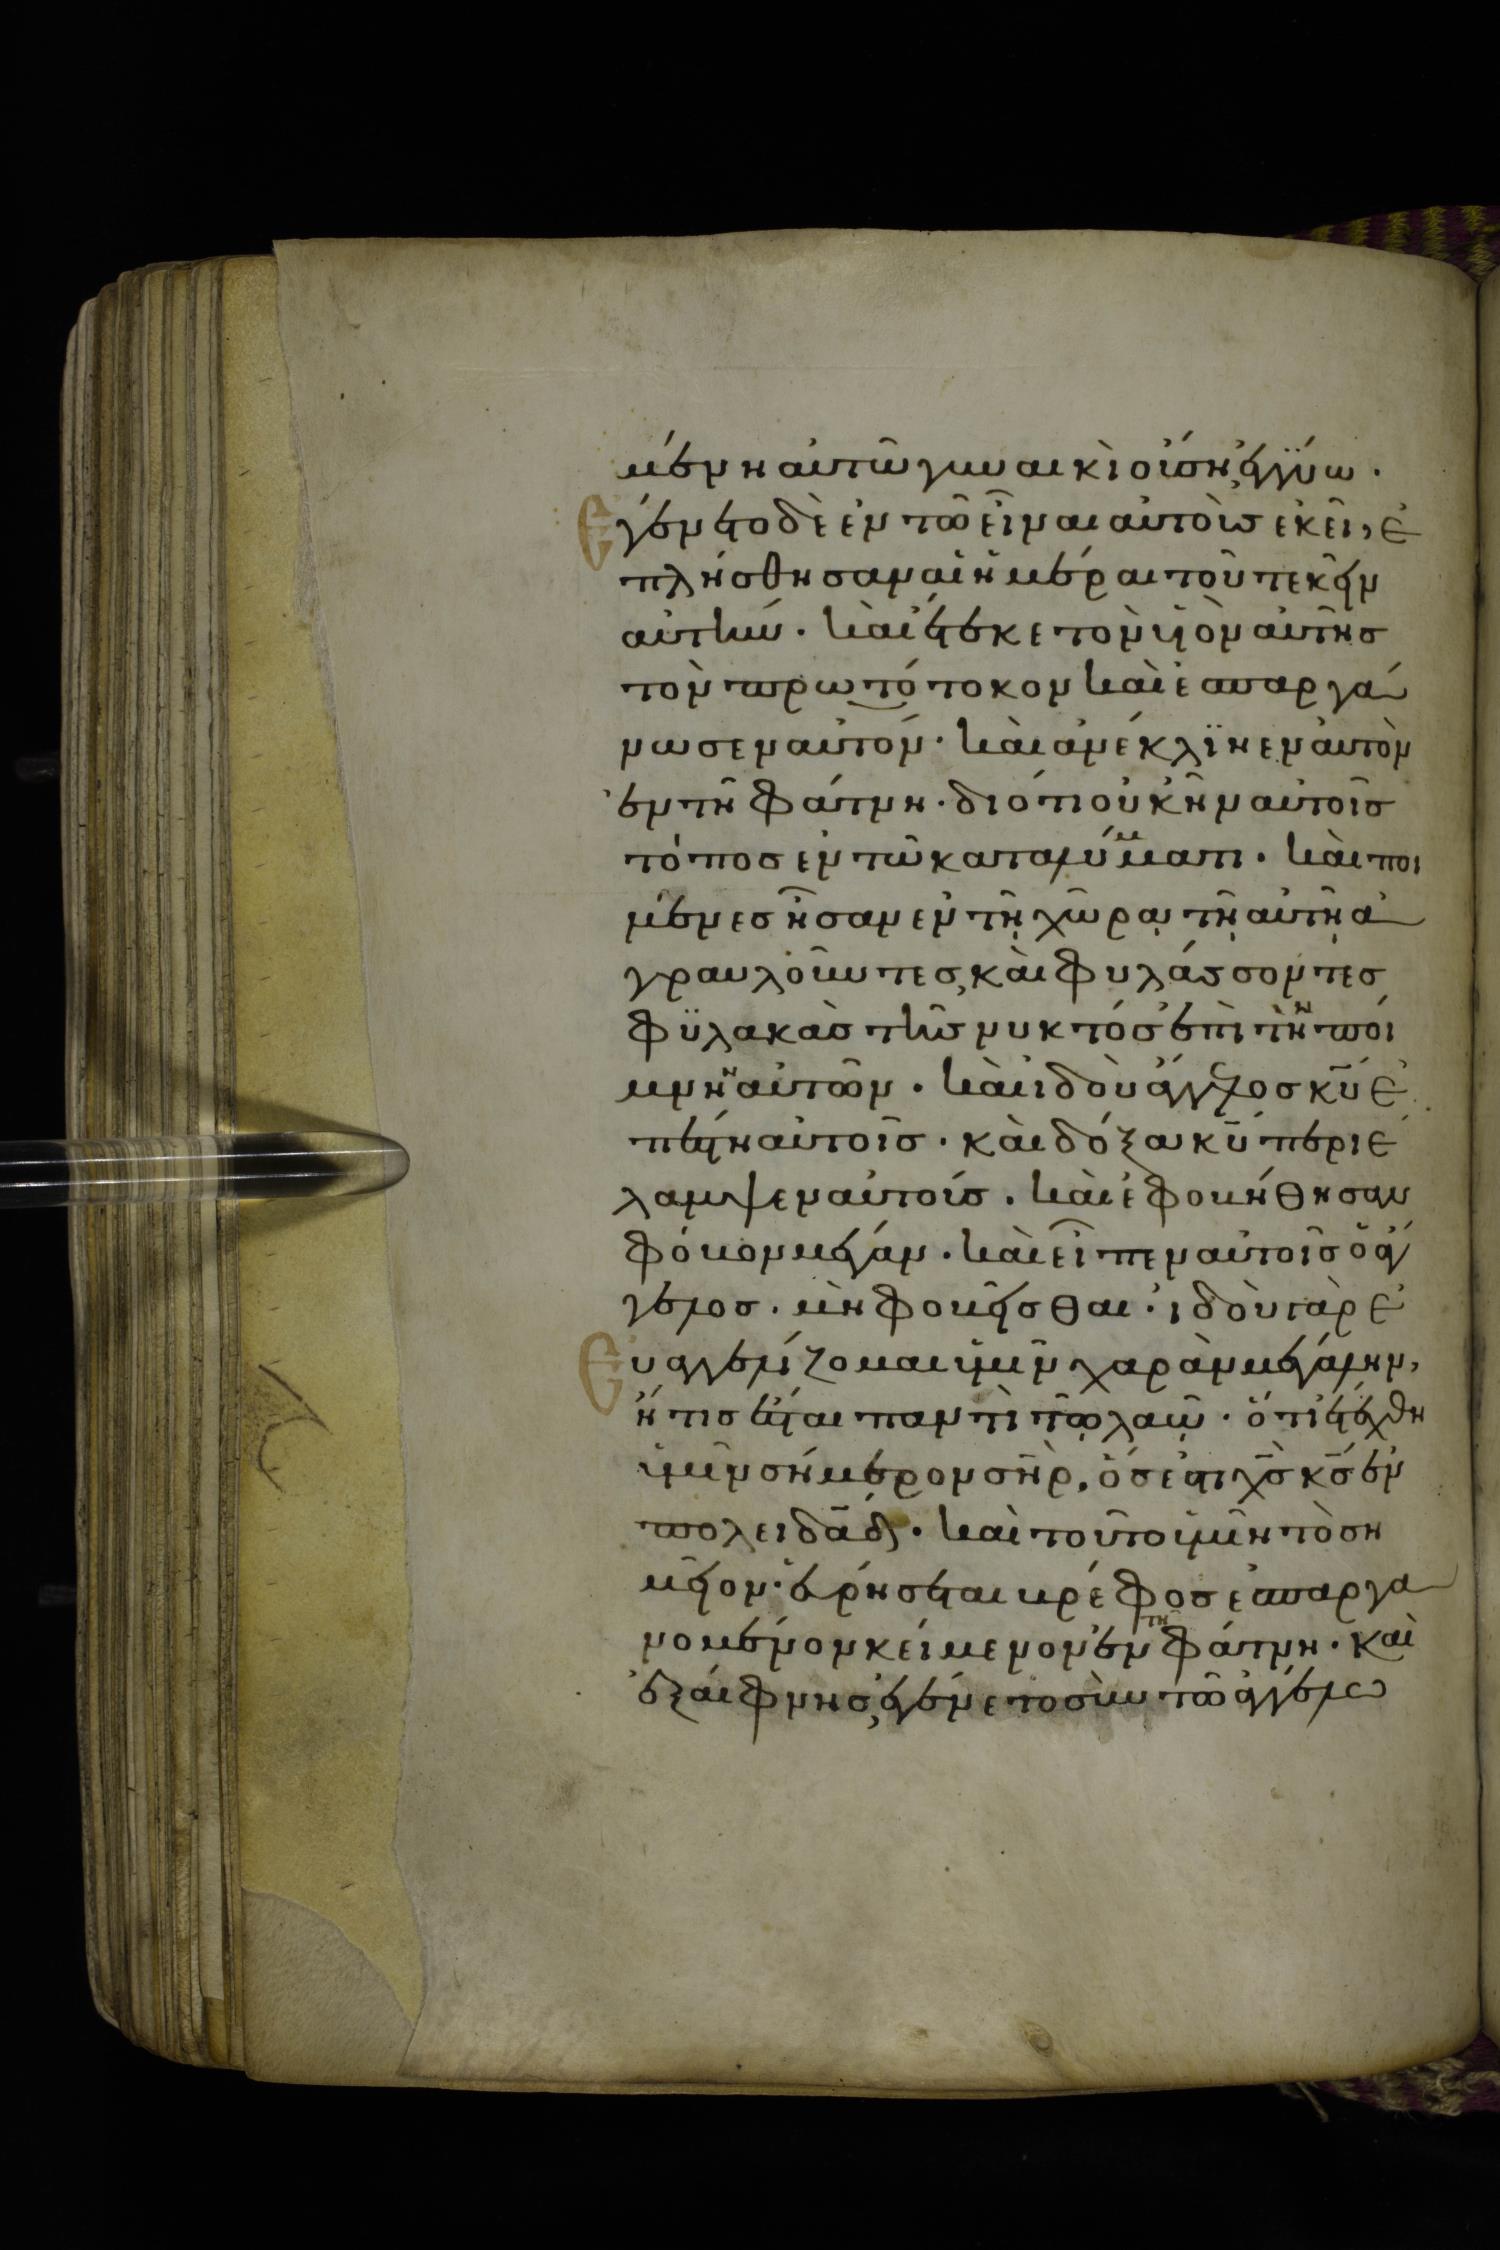 μένη αὐτῶ γυναικὶ οἴση ἐγγύω·
Ἐγένετο δὲ ἐν τῶ εἶναι αὐτοὺσ ἐκεῖ, ἐ
πλήσθησαν αἱ ἡμέραι τοῦ τεκεῖν
αὐτὴν· καὶ ἔτεκε τὸν ϋἱὸν αὐτῆσ
τὸν πρωτότοκον καὶ ἐσπαργά
νωσεν αὐτόν· καὶ ἀνέκλϊνεν αὐτὸν
ἐν τῆ φάτνη· διότι οὐκ ἦν αὐτοῖσ
τόποσ ἐν τῶ καταλύματι· καὶ ποι
μένεσ ἦσαν ἐν τῆ χῶρα τῆ αὐτῆ ἀ
γραυλοῦντεσ, καὶ φυλάσσοντεσ
φϋλακὰσ τῆσ νυκτόσ ἐπὶ τὴν ποί
μνην αὐτῶν· καὶ ἰδοὺ ἄγγελοσ κυ ἐ
πέστη αὐτοῖσ· καὶ δόξα κυ περιέ
λαμψεν αὐτοίσ· καὶ ἐφοβήθησαν
φόβον μέγαν· καὶ εἶπεν αὐτοῖσ ὁ ἄγ
γελοσ· μὴ φοβεῖσθαι· ἰδοὺ γὰρ ἐ
Ευαγγελίζομαι ὑμῖν χαρὰν μεγάλην,
ἥτισ ἔσται παντὶ τῶ λαῶ· ὅτι ἐτέχθη
ὑμῖν σήμερον σηρ, ὅσ ἐστι χσ κσ ἐν
πολει δαδ· καὶ τοῦτο ὑμῖν τὸ ση
μεῖον· εὑρήσεται βρέφοσ ἐσπαργα
νομένον κείμενον ἐν τῆ φάτνη· καὶ
ἐξαίφνησ, ἐγένετο σὺν τῶ ἀγγέλω